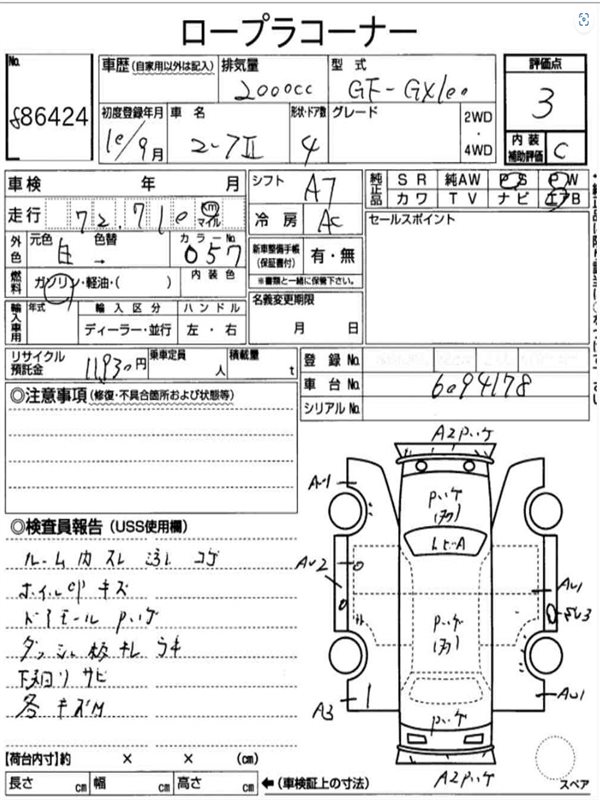 ロープラコーナー
No.
886424
車歴 (自家用以外は記入)
排気量
2000cc
型式
GF-GX100
評価点
3
内装
補助評価
C
初度登録年月
10/9月
車名
マークII
形状・ドア数
4
グレード
2WD
・
4WD
車検 年 月
走行 72,710 Km マイル
外色
元色 白
色替 →
カラーNo. 057
燃料
ガソリン・軽油・( )
内装色
輸入車用
年式
輸入区分
ディーラー・並行
ハンドル
左・右
シフト
A7
冷房
AC
新車整備手帳
(保証書付)
有・無
※書類と一緒に保管下さい。
名義変更期限
月 日
純正品
SR 純AW PS PW
カワ TV ナビ エアB
セールスポイント
リサイクル
預託金
11930円
乗車定員
人
積載量
t
登録No.
車台No.
6094178
シリアルNo.
◎注意事項 (修復・不具合箇所および状態等)
◎検査員報告 (USS使用欄)
ルーム内スレ 汚レ コゲ
ホイルCP キズ
ドアモール Pハゲ
ダッシュ板ナレ ウキ
下廻りサビ
各キズM
A2Pハゲ
AU1
Pハゲ
AU2
Pハゲ
AU1
A3
Pハゲ
AU1
A2Pハゲ
スペア
【荷台内寸】約 × × (cm)
長さ cm 幅 cm 高さ cm ←(車検証上の寸法)